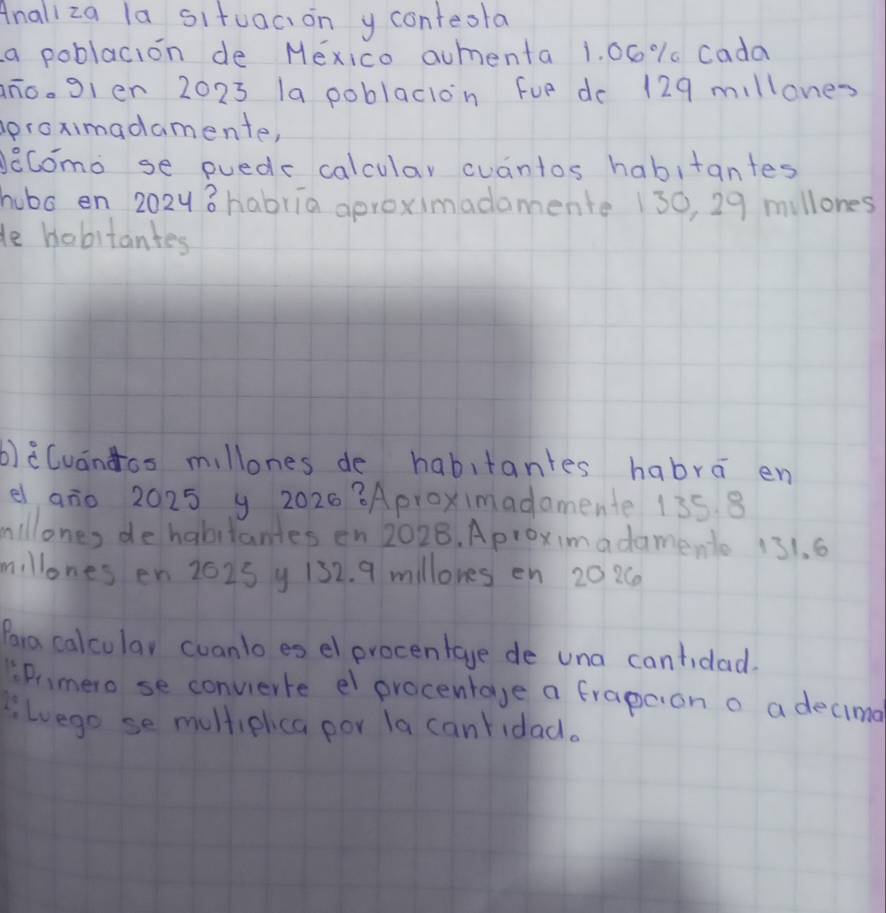 Analiza la situación y contesta
La población de México aumenta 1.06% cada
año. Si en 2023 la población fue de 129 millones
aproximadamente,
¿Cómo se puede calcular cuántos habitantes
hubo en 2024? habría aproximadamente 130,29 millones
de habitantes
b) ¿Cuántos millones de habitantes habrá en
el año 2025 y 2026? Aproximadamente 135.8
millones de habitantes en 2028. Aproximadamente 131.6
millones en 2025 y 132.9 millones en 2026
Para calcular cuanlo es el procentaje de una cantidad.
1º: Primero se convierte el procentaje a frapcion o a decima
2º: Luego se multiplica por la cantidad.